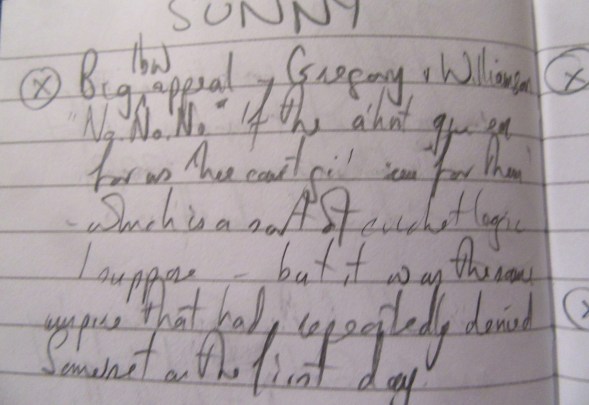 SUNNY
lbw
X Big appeal - Gregory v Williamson X
"No. No. No." If the ain't given
for us they can't give 'em for them
- which is a sort of cricket logic
I suppose - but it was the same
umpire that had repeatedly denied
Somerset on the first day.